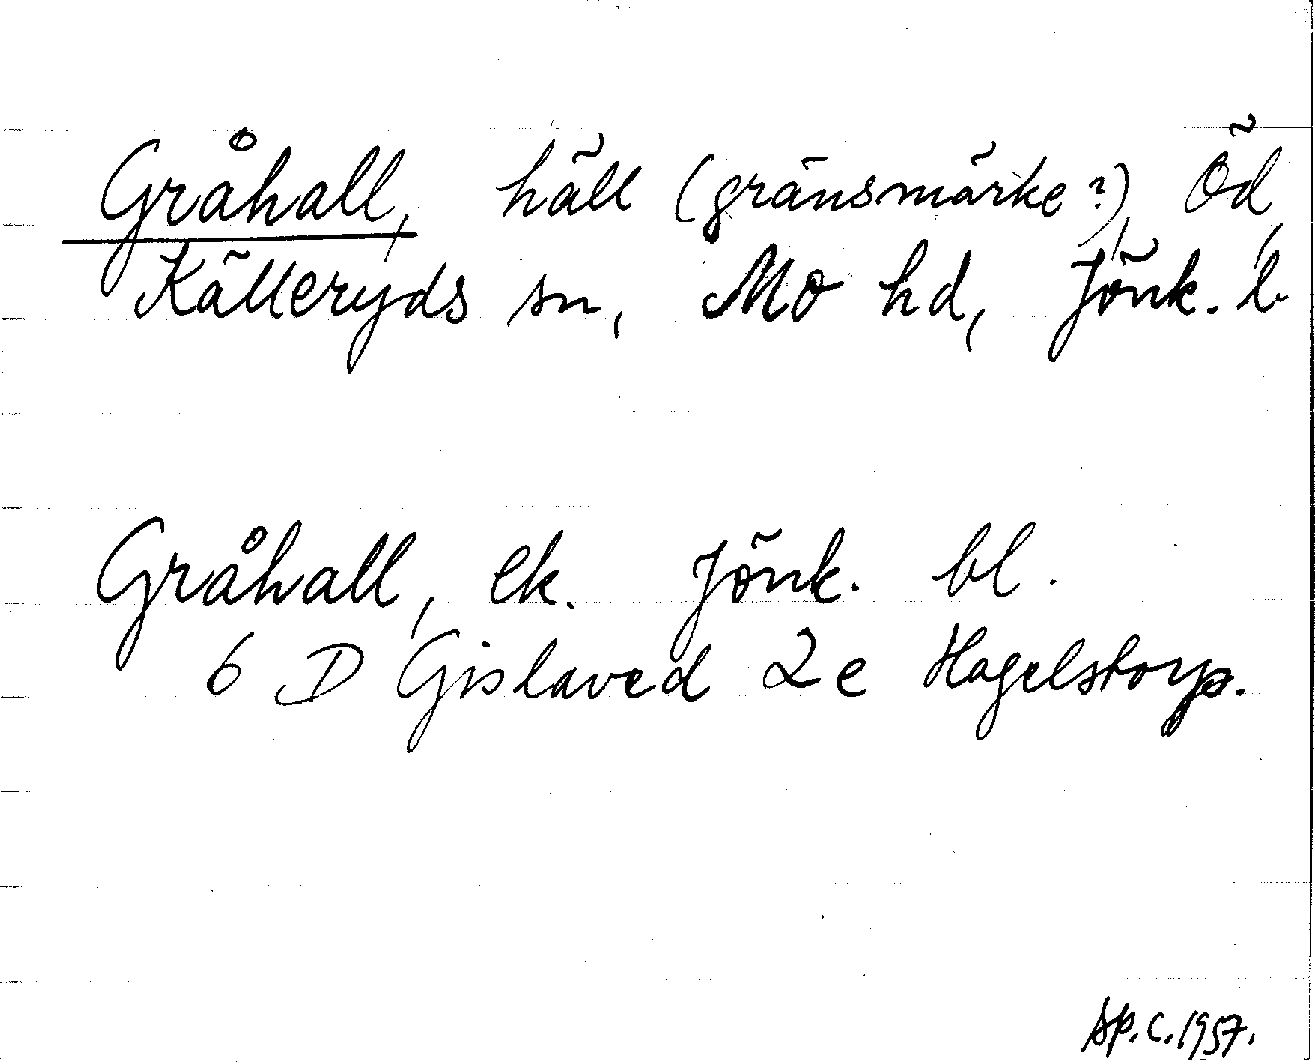 Gråhall, häll (gränsmärke?), Öd,
Källeryds sn, Mo hd, Jönk. l.
Gråhall, ek. Jönk. bl.
6 D Gislaved 2e Hagelstorp.
Sp.c.1957.